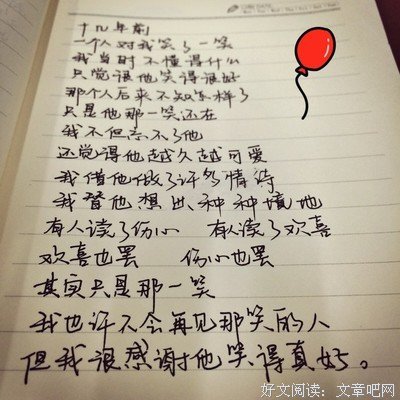 十几年前
一个人对我笑了一笑
我当时不懂得什么
只觉得他笑得很好
那个人后来不知怎样了
只是他那一笑还在
我不但忘不了他
还觉得他越久越可爱
我借他做了许多情诗
我替他想出种种境地
有人读了伤心 有人读了欢喜
欢喜也罢 伤心也罢
其实只是那一笑
我也许不会再见那笑的人
但我很感谢他笑得真好。
好文阅读：文章吧网